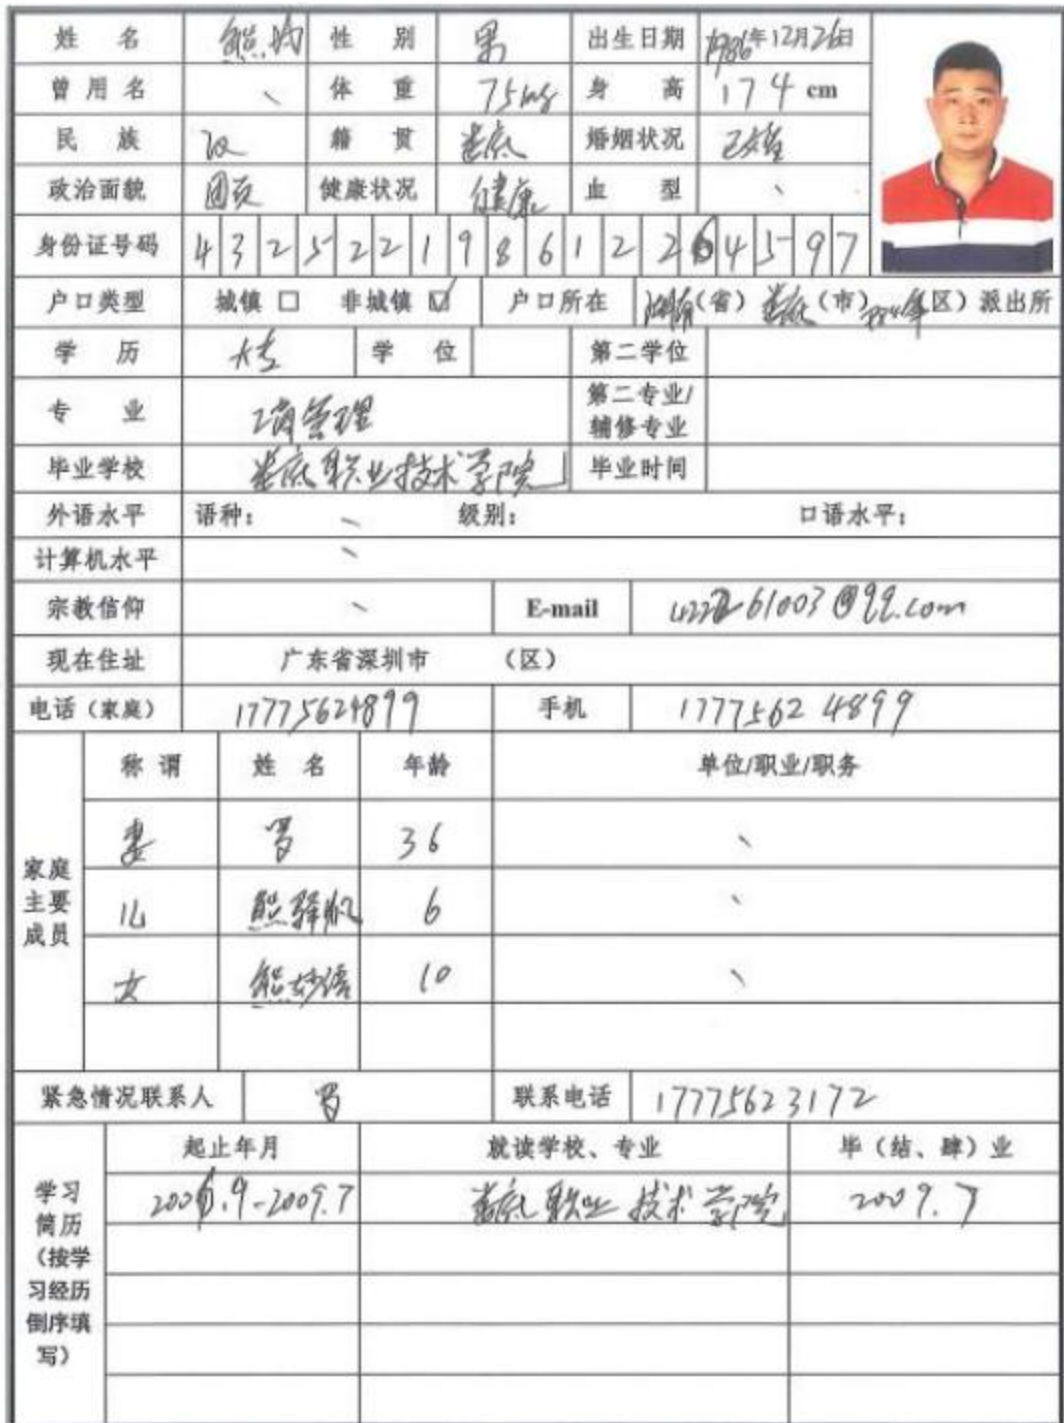 姓 名 熊均 性 别 男 出生日期 1986年12月26日
曾用名 、 体 重 75kg 身 高 174 cm
民 族 汉 籍 贯 娄底 婚姻状况 已婚
政治面貌 团员 健康状况 健康 血 型 、
身份证号码 432522198612264597
户口类型 城镇 □ 非城镇 ☑ 户口所在 湖南(省) 娄底(市) (区)派出所
学 历 大专 学 位 第二学位
专 业 工商管理 第二专业/
辅修专业
毕业学校 娄底职业技术学院 毕业时间
外语水平 语种: 、 级别: 口语水平:
计算机水平 、
宗教信仰 、 E-mail 61003@qq.com
现在住址 广东省深圳市 (区)
电话(家庭) 17775624899 手机 17775624899
称 谓 姓 名 年龄 单位/职业/职务
妻 罗 36 、
家庭
主要
成员
儿 熊驿 6 、
女 熊妙语 10 、
紧急情况联系人 罗 联系电话 17775623172
起止年月 就读学校、专业 毕(结、肄)业
学习
简历
(按学
习经历
倒序填
写)
2006.9-2009.7 娄底职业技术学院 2009.7